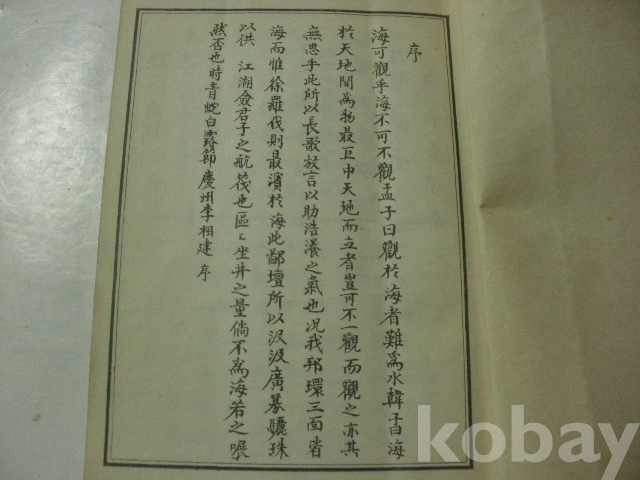 序
海可觀乎海不可不觀孟子曰觀於海者難爲水韓子曰海
於天地間爲物最巨中天地而立者豈可不一觀而觀之亦其
無思乎此所以長歌放言以助浩養之氣也况我邦環三面皆
海而惟徐羅伐則最濱於海此鄙壇所以汲汲廣募驪珠
以供江湖僉君子之航筏也區〻坐井之量倘不爲海若之嗔
然否也時青蛇白露節慶州李相建序
kobay